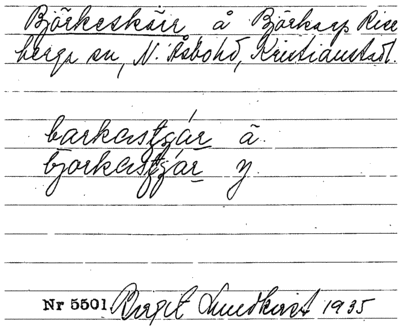 Björkeskär å Björkarp Rise
berga sn, N. Åsbohd, Kristianstadl.
barkastzár ä.
bjorkastzár y.
Nr 5501. Birgit Lundkvist 1935